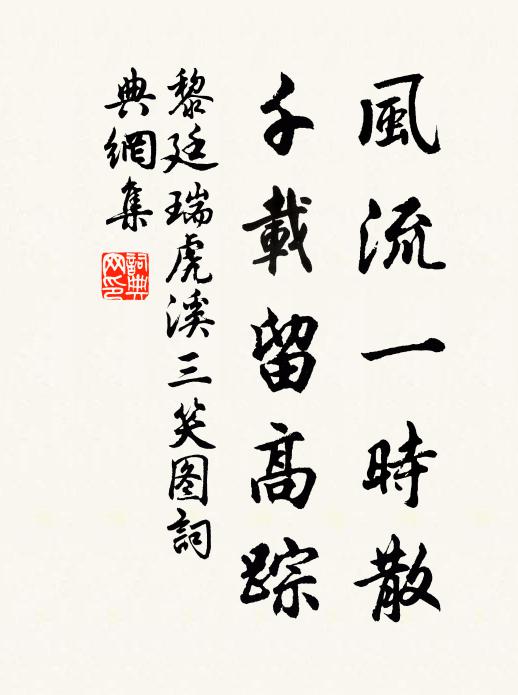 風流一時散
千載留高踪
黎廷瑞虎溪三笑图詞
典網集
詞典網印